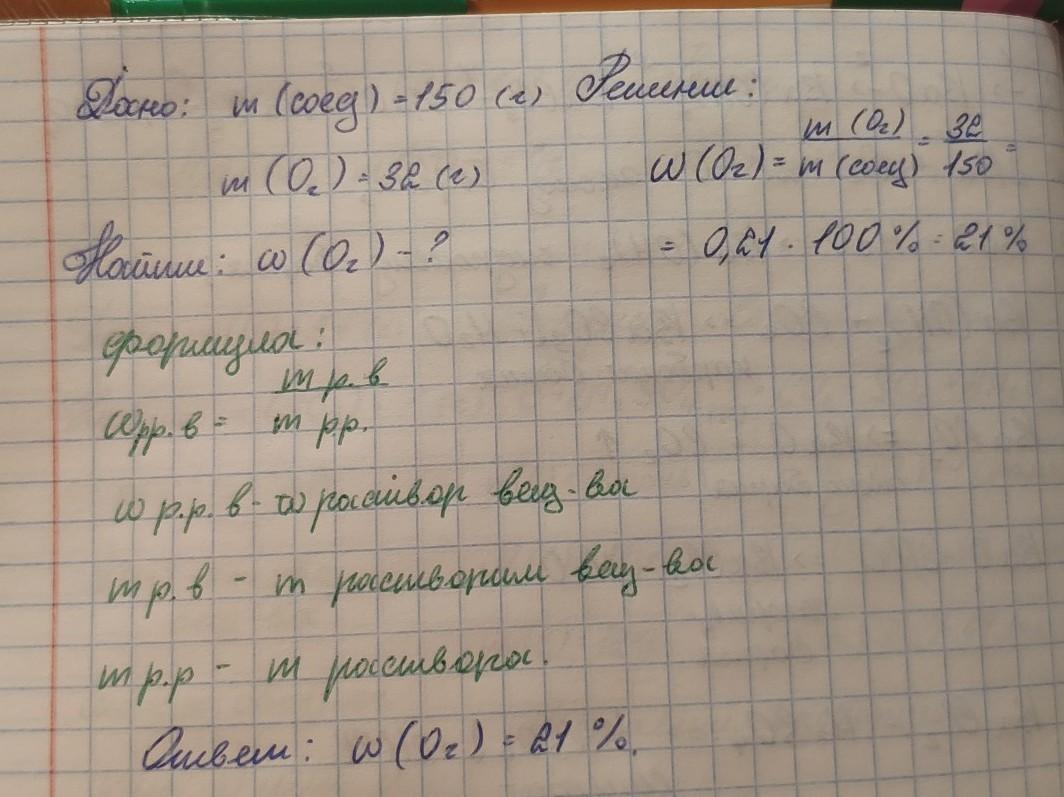 Дано: m (соед) = 150 (г) Решение:
m (O₂) = 32 (г)
ω (O₂) = m (O₂) / m (соед) = 32 / 150 =
Найти: ω (O₂) - ?
= 0,21 · 100 % = 21 %
формула:
ωрр. в = m р. в / m р.р.
ω р.р. в - ω раствор вещ-ва
m р. в - m растворим вещ-ва
m р.р - m раствора.
Ответ: ω (O₂) = 21 %.